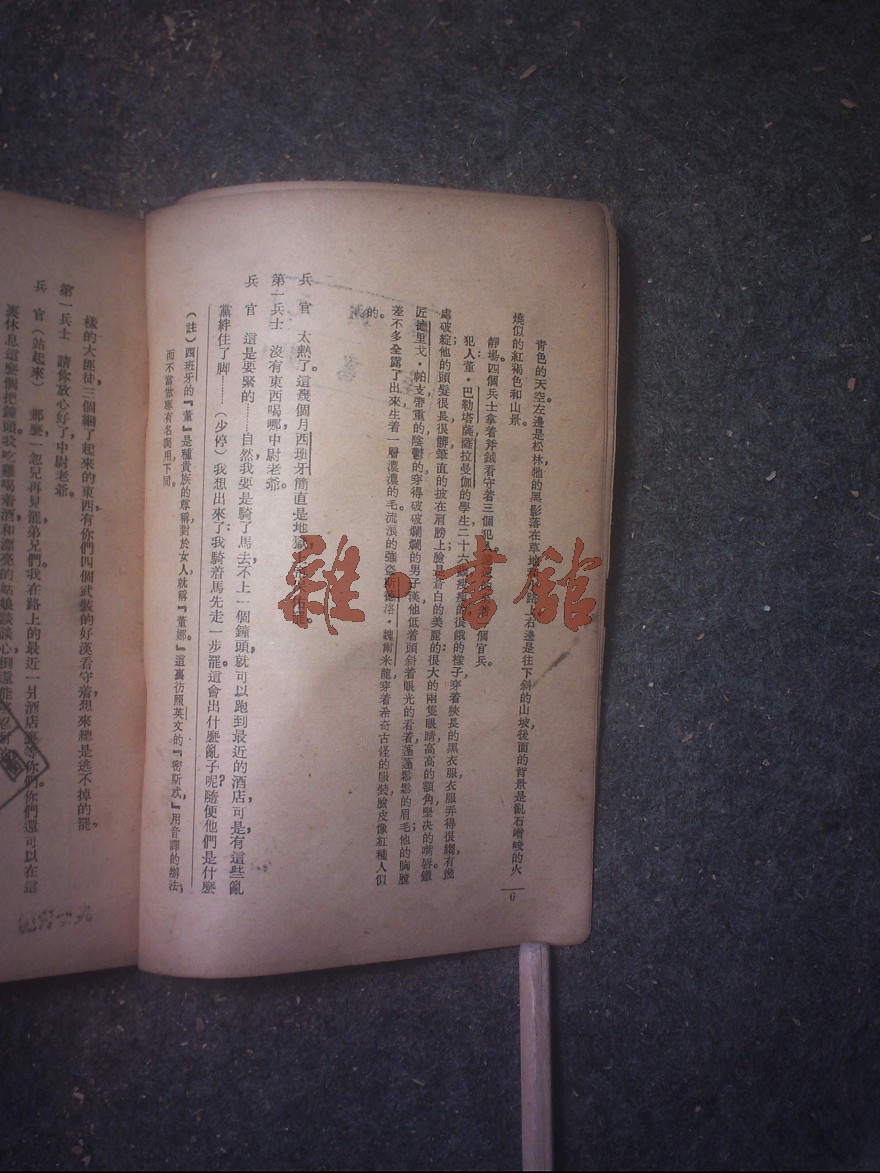 青色的天空左邊是松林牠的黑影落在草地
路上右邊是往下斜的山坡後面的背景是亂石嶒崚的火
燒似的紅褐色和山景。
靜場四個兵士拿着斧鉞看守着三個犯
個官兵。
犯人董·巴勒塔薩薩拉曼伽的學生二十
很餓的樣子穿着狹長的黑衣服衣服弄得很縐有幾
處破綻他的頭髮很長很髒筆直的披在肩膀上臉是蒼白的美麗的很大的兩隻眼睛高高的額角堅決的嘴唇鐵
匠德里戈·帕支帶重的陰鬱的穿得破破爛爛的男子漢他低着頭斜着眼光的看着蓬蓬鬆鬆的眉毛他的胸膛
差不多全露了出來生着一層濃濃的毛流氓的強盜
洛·魏爾米龍穿着希奇古怪的服裝臉皮像紅種人似
的。
兵　官　太熱了。這幾個月西班牙簡直是地獄，
第一兵士　沒有東西喝哪中尉老爺。
兵　官　這是要緊的……自然我要是騎了馬去不上一個鐘頭就可以跑到最近的酒店，可是有這些亂
黨絆住了脚……（少停）我想出來了：我騎着馬先走一步罷。這會出什麽亂子呢？隨便他們是什麽
（註）西班牙的『董』是種貴族的尊稱，對於女人就稱『董娜』。這裏仿照英文的『密斯忒』用音譯的辦法，
而不當做專有名詞用下同。
6
樣的大匪徒，三個綑了起來的東西有你們四個武裝的好漢看守着想來總是逃不掉的罷。
第一兵士　請你放心好了中尉老爺。
兵　官（站起來）　那麽一忽兒再見罷弟兄們。我在路上的最近一另酒店裏等你們。你們還可以在這
裏休息這麽個把鐘頭我吃雞喝着酒和漂亮的姑娘談談心倒還能
雜·書館